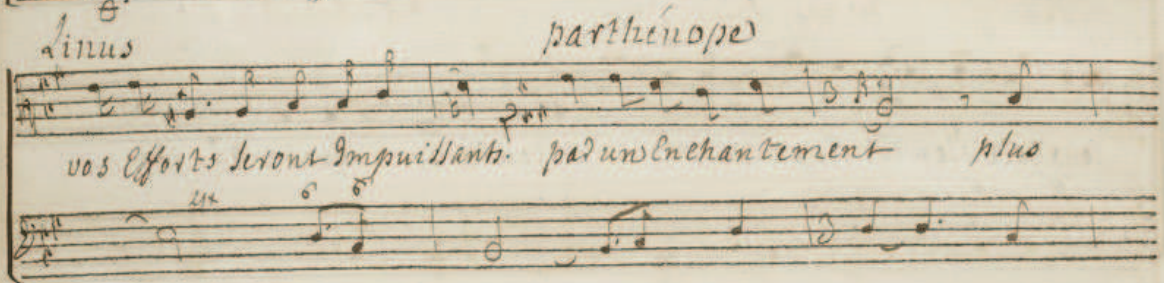 Linus parthenope
vos Efforts seront Impuissants. par un Enchantement plus
6 6